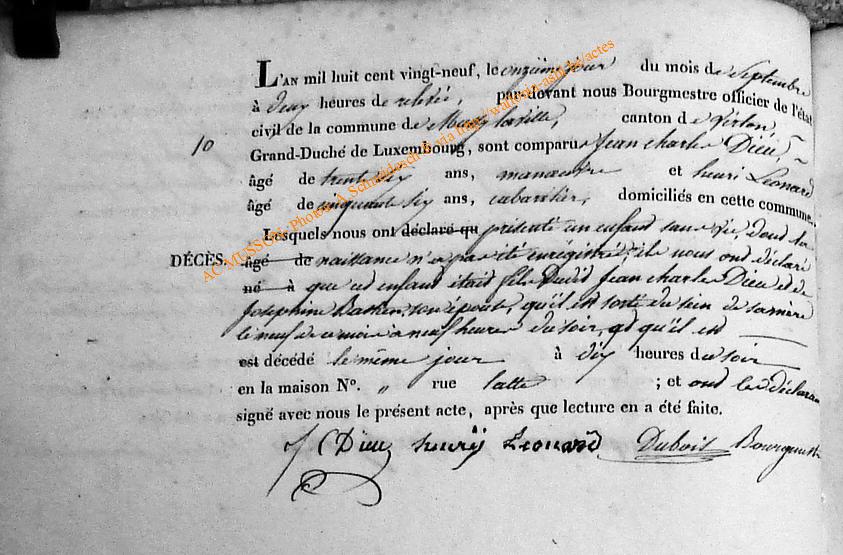 L'AN mil huit cent vingt-neuf, le onzième jour du mois de Septembre
à deux heures de relevée, par-devant nous Bourgmestre officier de l'état
civil de la commune de Mussy laville, canton de Virton,
10
Grand-Duché de Luxembourg, sont comparus Jean charles Dieu,
âgé de trente six ans, manoeuvre et henri Leonard
âgé de cinquante six ans, cabaretier, domiciliés en cette commune.
Lesquels nous ont déclaré qu présenté un enfant sans vie, dont la
DÉCÈS.
âgé de naissance n'a pas été enregistrée; ils nous ont déclaré
né à que cet enfant était fils dudit Jean charles Dieu et de
Josephine son épouse, qu'il est sorti du sein de sa mère
le neuf de ce mois à neuf heures du soir, et qu'il est
est décédé le même jour à dix heures du soir
en la maison N°. „ rue latte ; et ont les déclarans
signé avec nous le présent acte, après que lecture en a été faite.
J C Dieu henrÿ Leonard Dubois Bourgmestre
AC MUSSON- Photos A Schnaidesch & via http://